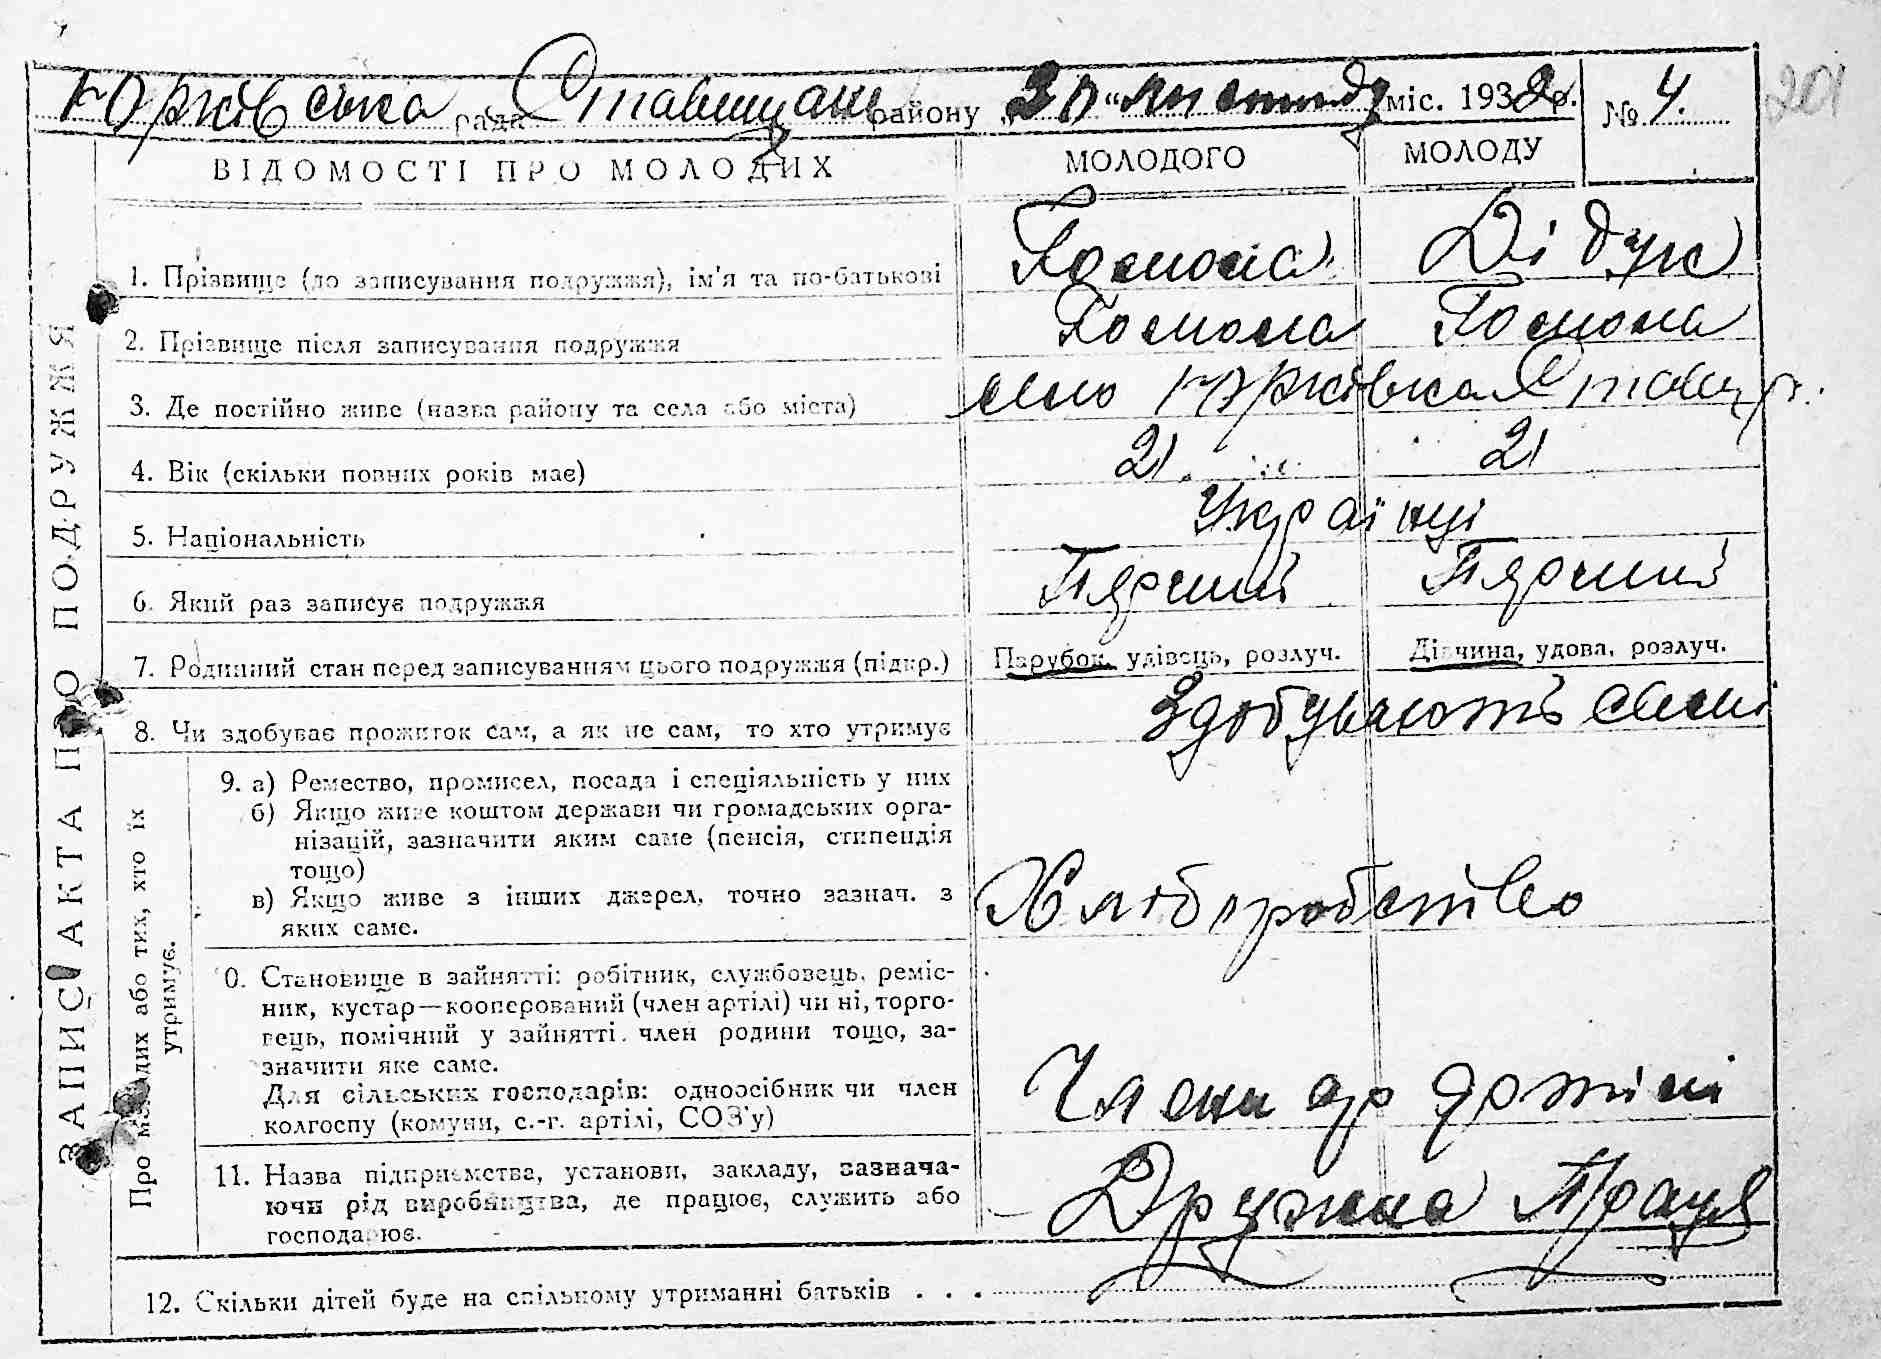 Юрківська рада Ставищан району „30“ листопаду міс. 1932 р. № 4. 201
ВІДОМОСТІ ПРО МОЛОДИХ МОЛОДОГО МОЛОДУ
1. Прізвище (до записування подружжя), ім'я та по-батькові Гомона Дідук
2. Прізвище після записування подружжя Гомона Гомона
3. Де постійно живе (назва району та села або міста) село Юрківка Ставищ р.
4. Вік (скільки повних років має) 21. 21
5. Національність Українці
6. Який раз записує подружжя Первий Первий
7. Родинний стан перед записуванням цього подружжя (підкр.) Парубок, удівець, розлуч. Дівчина, удова, розлуч.
8. Чи здобуває прожиток сам, а як не сам, то хто утримує Здобувають самі
ЗАПИС АКТА ПРО ПОДРУЖЖЯ
Про молодих або тих, хто їх
утримує.
9. а) Ремество, промисел, посада і спеціяльність у них
б) Якщо живе коштом держави чи громадських орга-
нізацій, зазначити яким саме (пенсія, стипендія
тощо)
в) Якщо живе з інших джерел, точно зазнач. з
яких саме.
Хліборобство
0. Становище в зайнятті: робітник, службовець, реміс-
ник, кустар—кооперований (член артілі) чи ні, торго-
вець, помічний у зайнятті член родини тощо, за-
значити яке саме.
Для сільських господарів: одноосібник чи член
колгоспу (комуни, с.-г. артілі, СОЗ'у)
Члени артілі
11. Назва підприємства, установи, закладу, зазнача-
ючи рід виробництва, де працює, служить або
господарює.
Дружна Праця
12. Скільки дітей буде на спільному утриманні батьків . . .